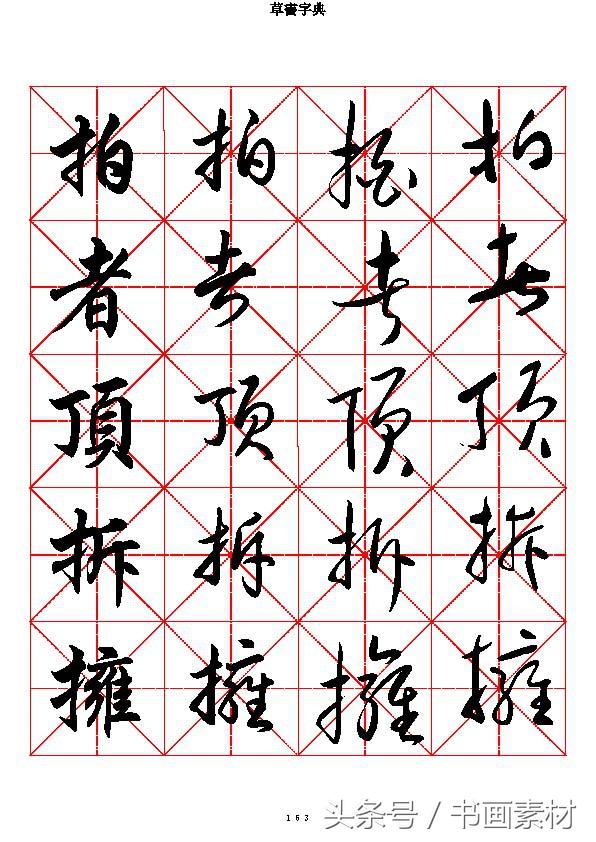 草書字典
拍拍拍拍
者者者者
頂頂頂頂
拆拆拆拆
擁擁擁擁
163
头条号 / 书画素材